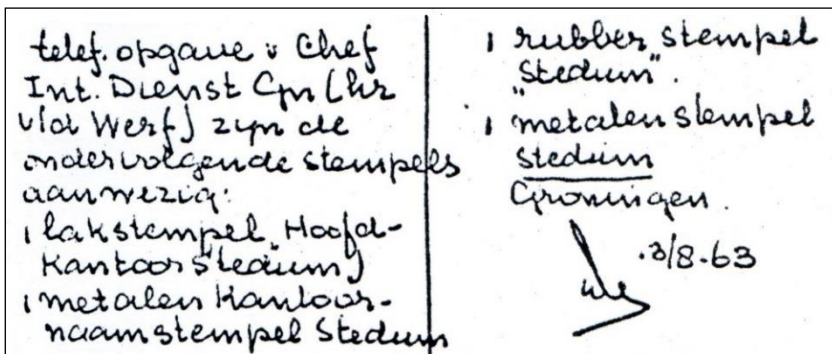 telef. opgave v Chef
Int. Dienst Gn (hr
v/d Werf) zyn de
ondervolgende stempels
aanwezig:
1 lakstempel "Hoofd-
kantoor Stedum)
1 metalen Kantoor-
naamstempel Stedum
1 rubber stempel
"Stedum".
1 metalen stempel
Stedum
Groningen.
3/8-63